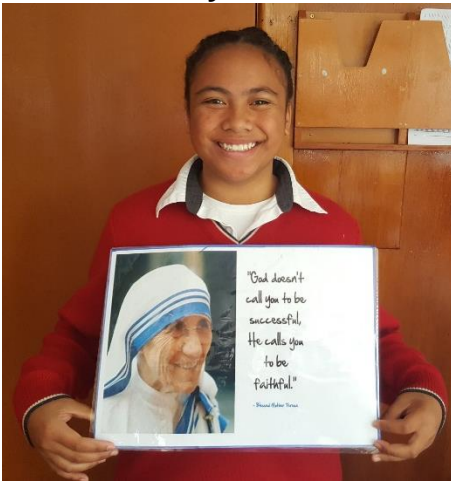 "God doesn't
call you to be
successful,
He calls you
to be
faithful."
- Blessed Mother Teresa